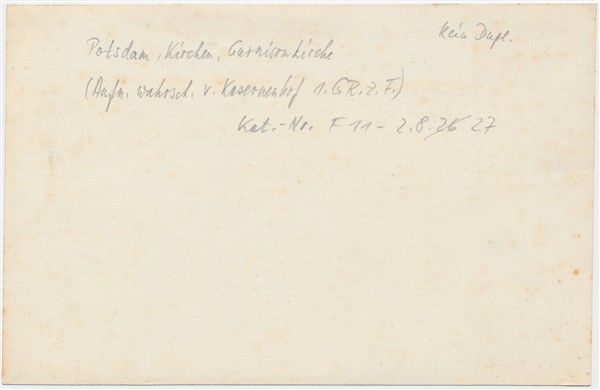 Kein Dupl.
Potsdam, Kirchen, Garnisonkirche
(Aufn. wahrsch. v. Kasernenhof 1.G.R.z.F.)
Kat.-No. F 11 - 2.8.26 27